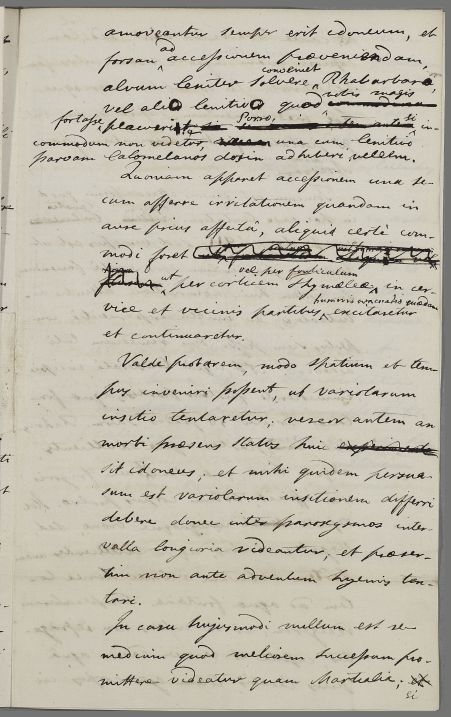 amoveantur semper erit idoneum, et
forsan ad accessionem præveniendam,
alvum leniter solvere conveniet Rhabarbaro,
vel alio lenitivo quod vobis magis
fortasse placuerit. Porro, si in-
commodum non videtur, una cum lenitivo
parvam Calomelanos dosin adhiberi vellem.
Quoniam apparet accessionem una se-
cum afferre irritationem quandam in
aure prius affecta, aliquid certe com-
modi foret
ut per corticem Thymelææ vel per fonticulum in cer-
vice et vicinis partibus humoris excitaretur
et continuaretur.
Valdè probarem, modo spatium et tem-
pus inveniri possent, ut variolarum
insitio tentaretur; vereor autem an
morbi præsens status huic
sit idoneus; et mihi quidem persua-
sum est variolarum insitionem differri
debere donec inter paroxysmos inter-
valla longiora videantur, et præser-
tim non ante adventum hyemis ten-
tari.
In casu hujusmodi nullum est re-
medium quod meliorem successum pro-
mittere videatur quam Martialia;
si